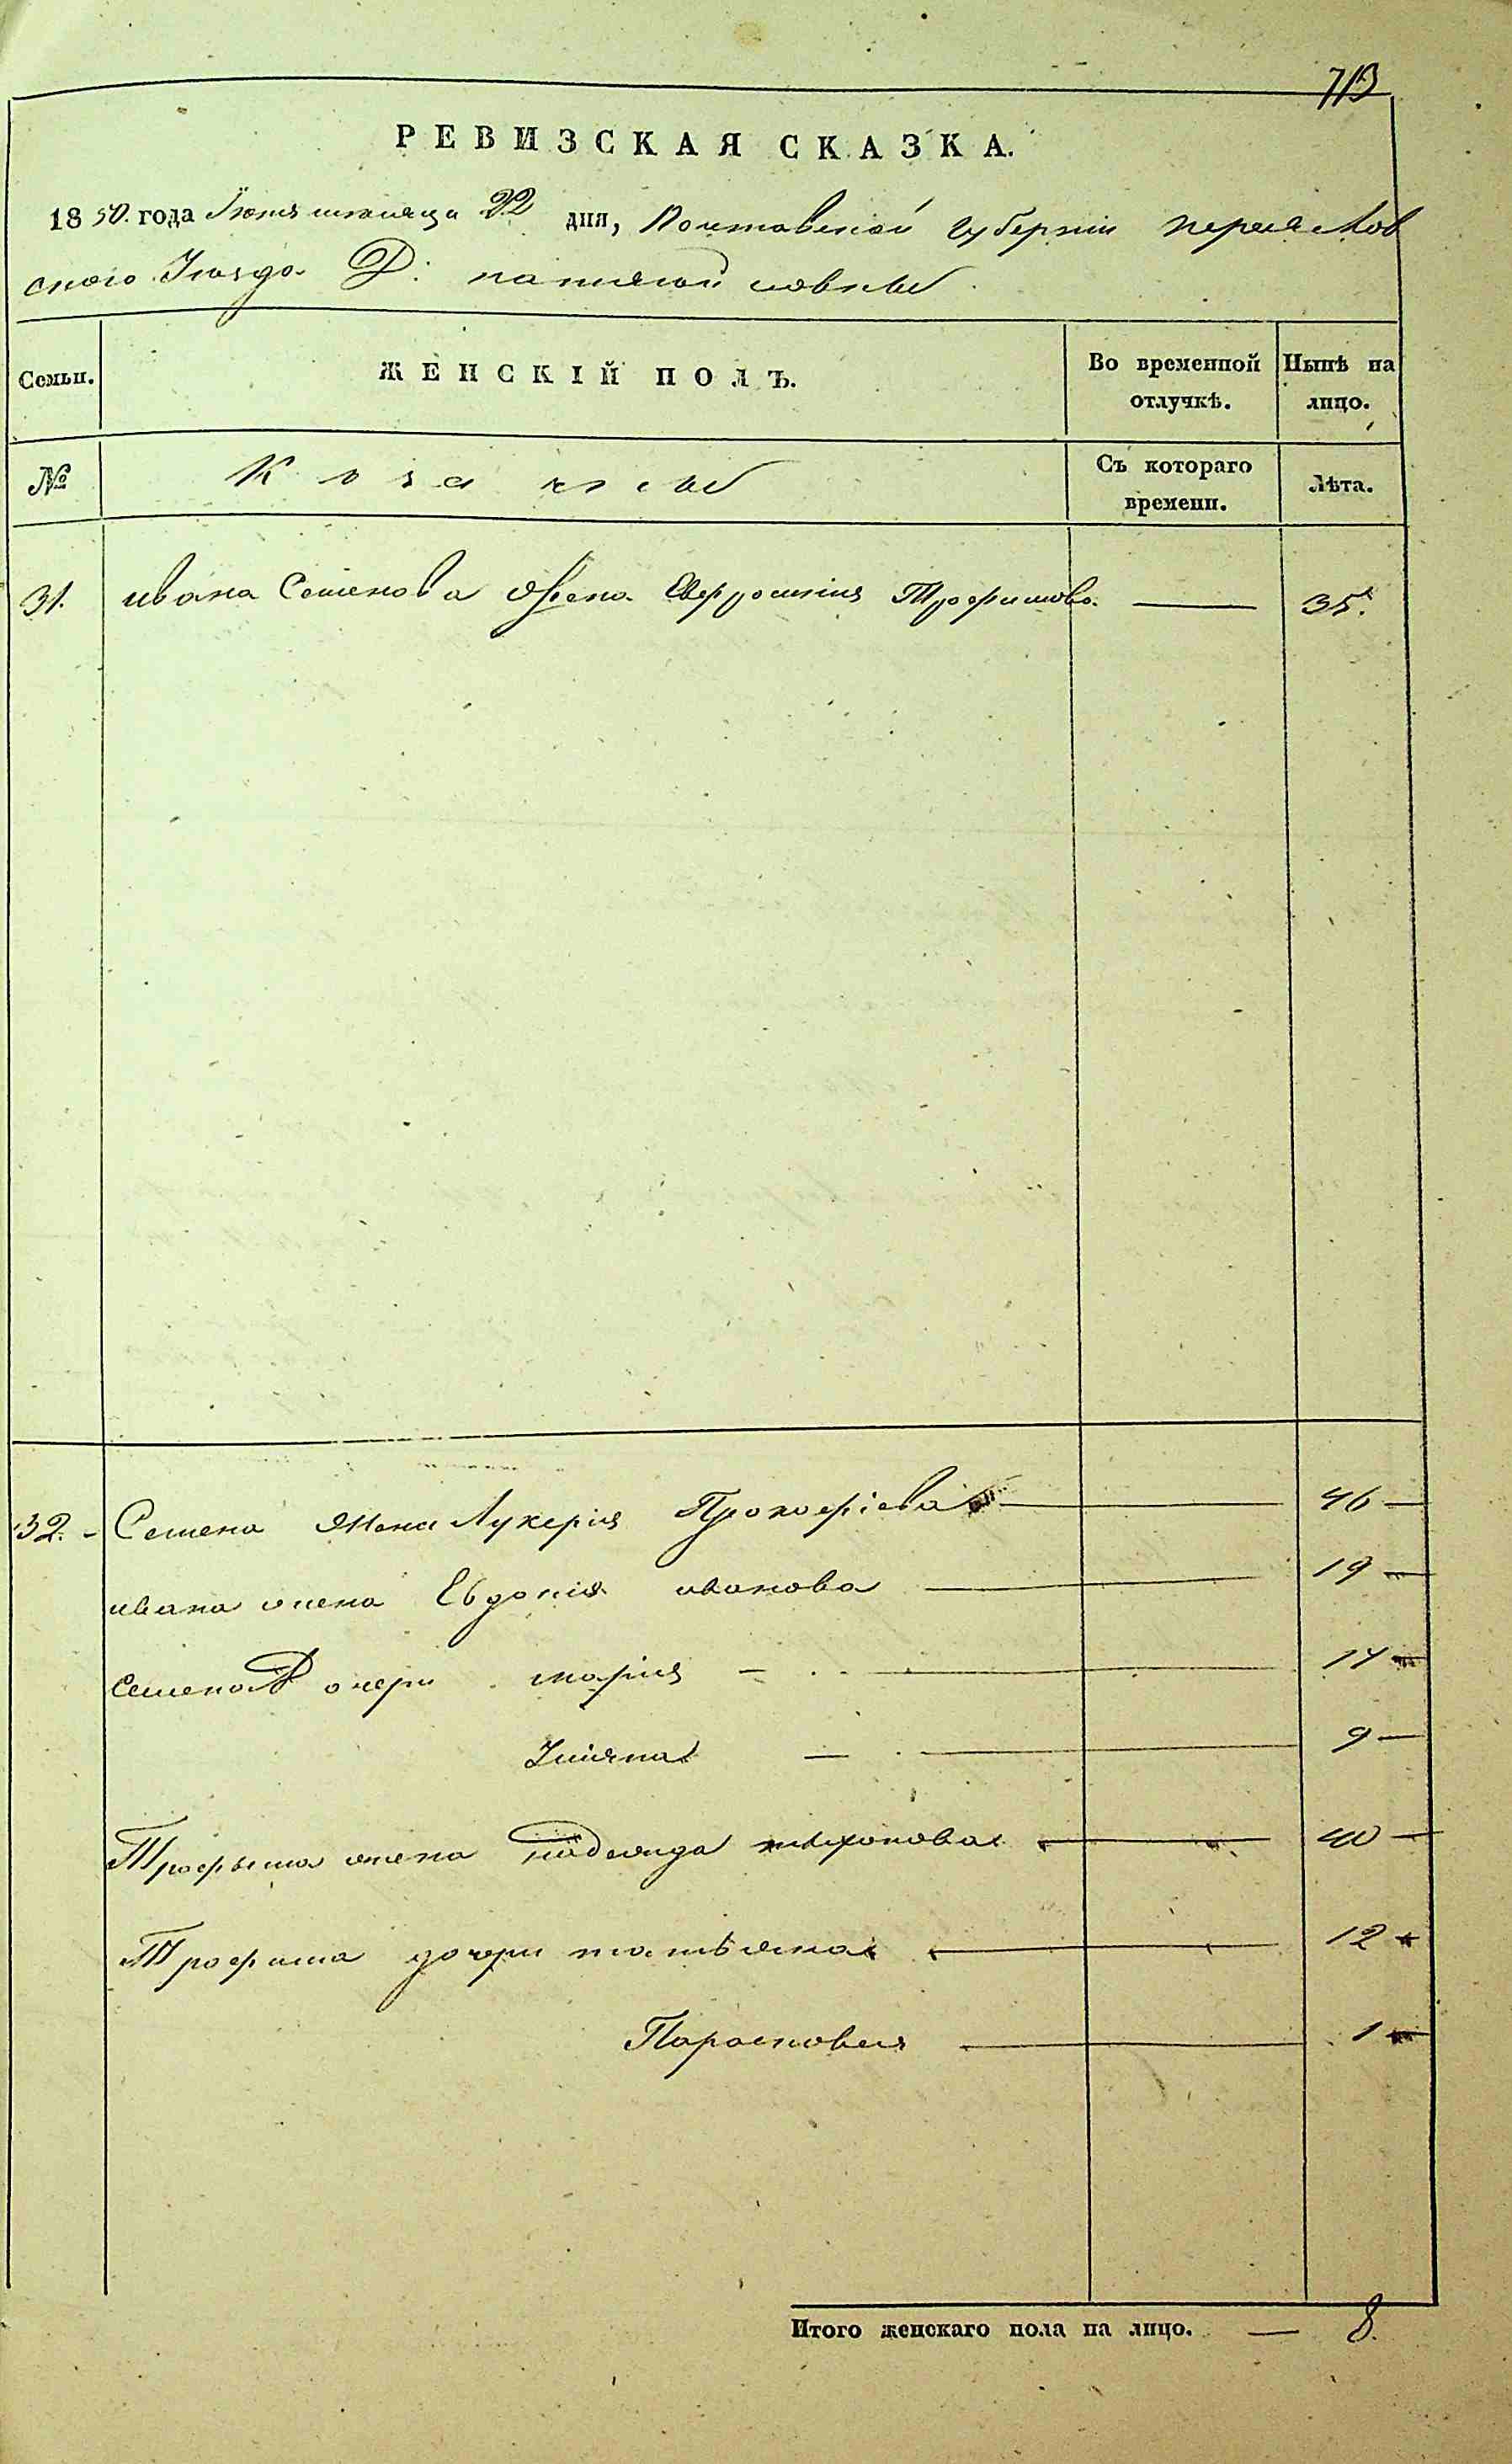 713
РЕВИЗСКАЯ СКАЗКА.
1850. года Іюня месяца 22 дня, Полтавской губерніи переяслов
ского Уезда Д:
Семьи. ЖЕНСКІЙ ПОЛЪ. Во временной отлучкѣ. Нынѣ на лицо.
№ Козачьи Съ котораго времени. Лѣта.
31. ивана Семенова жена Евфросинія Трофимова — 35.
32. Семена жена Лукерія Прокофіева — 46 —
ивана жена Евдокія иванова — 19 —
Семена Дочери марія — 14 —
Уліяна — 9 —
Трофыма жена надежда — 40 —
Трофима дочери татьяна — 12
Парасковия — 1
Итого женскаго пола на лицо. — 8.